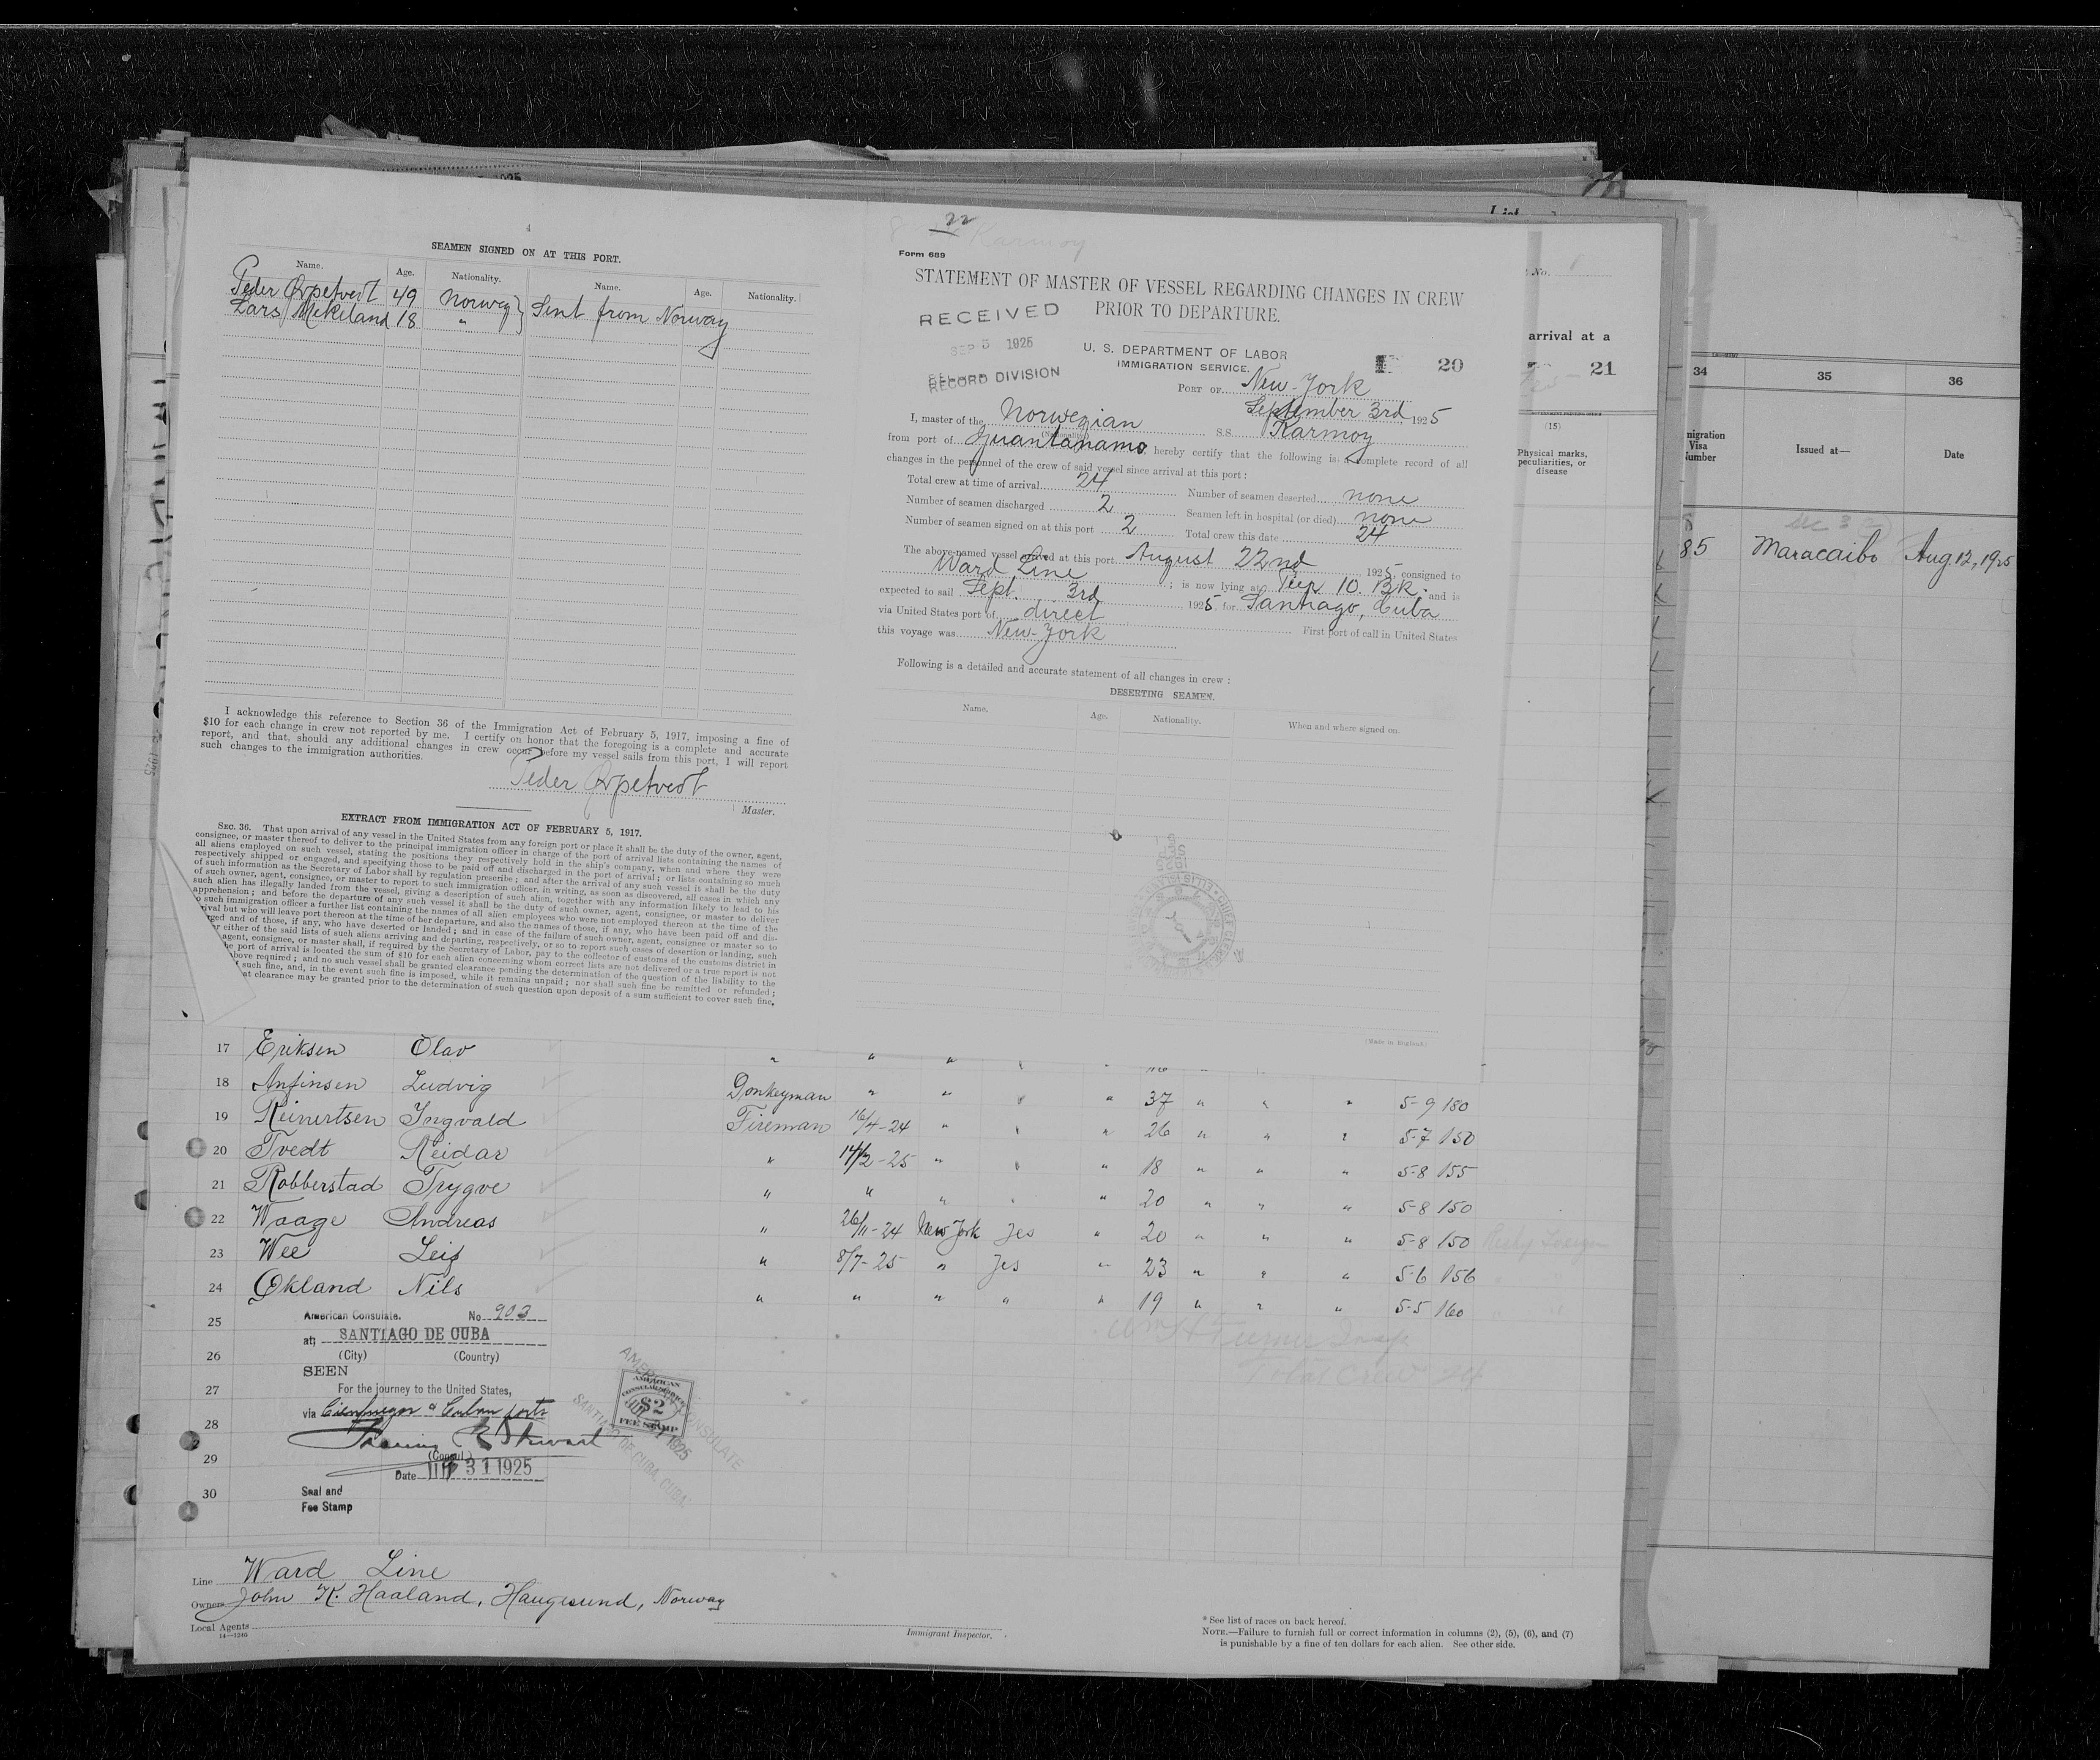 SEAMEN SIGNED ON AT THIS PORT.
Name. Age. Nationality. Name. Age. Nationality.
Peder Qvpetvedt 49 Norway } Sent from Norway
Lars Mekeland 18 "
I acknowledge this reference to Section 36 of the Immigration Act of February 5, 1917, imposing a fine of
$10 for each change in crew not reported by me. I certify on honor that the foregoing is a complete and accurate
report, and that, should any additional changes in crew occur before my vessel sails from this port, I will report
such changes to the immigration authorities.
Peder Qvpetvedt
Master.
EXTRACT FROM IMMIGRATION ACT OF FEBRUARY 5, 1917.
SEC. 36. That upon arrival of any vessel in the United States from any foreign port or place it shall be the duty of the owner, agent,
consignee, or master thereof to deliver to the principal immigration officer in charge of the port of arrival lists containing the names of
all aliens employed on such vessel, stating the positions they respectively hold in the ship's company, when and where they were
respectively shipped or engaged, and specifying those to be paid off and discharged in the port of arrival; or lists containing so much
of such information as the Secretary of Labor shall by regulation prescribe; and after the arrival of any such vessel it shall be the duty
of such owner, agent, consignee, or master to report to such immigration officer, in writing, as soon as discovered, all cases in which any
such alien has illegally landed from the vessel, giving a description of such alien, together with any information likely to lead to his
apprehension; and before the departure of any such vessel it shall be the duty of such owner, agent, consignee, or master to deliver
such immigration officer a further list containing the names of all alien employees who were not employed thereon at the time of the
rival but who will leave port thereon at the time of her departure, and also the names of those, if any, who have been paid off and dis-
rged and of those, if any, who have deserted or landed; and in case of the failure of such owner, agent, consignee or master so to
either of the said lists of such aliens arriving and departing, respectively, or so to report such cases of desertion or landing, such
agent, consignee, or master shall, if required by the Secretary of Labor, pay to the collector of customs of the customs district in
he port of arrival is located the sum of $10 for each alien concerning whom correct lists are not delivered or a true report is not
bove required; and no such vessel shall be granted clearance pending the determination of the question of the liability to the
such fine, and, in the event such fine is imposed, while it remains unpaid; nor shall such fine be remitted or refunded;
at clearance may be granted prior to the determination of such question upon deposit of a sum sufficient to cover such fine.
22
Karmoy
Form 689
STATEMENT OF MASTER OF VESSEL REGARDING CHANGES IN CREW
PRIOR TO DEPARTURE.
RECEIVED
SEP 5 1925
RECORD DIVISION
U. S. DEPARTMENT OF LABOR
IMMIGRATION SERVICE.
20
PORT OF New-York
September 3rd, 1925
I, master of the Norwegian S.S. Karmoy
from port of Guantanamo, hereby certify that the following is a complete record of all
changes in the personnel of the crew of said vessel since arrival at this port:
Total crew at time of arrival 24 Number of seamen deserted none
Number of seamen discharged 2 Seamen left in hospital (or died) none
Number of seamen signed on at this port 2 Total crew this date 24
The above-named vessel arrived at this port August 22nd 1925, consigned to
Ward Line ; is now lying at Pier 10. Bk. and is
expected to sail Sept. 3rd 1925 for Santiago, Cuba
via United States port of direct First port of call in United States
this voyage was New-York
Following is a detailed and accurate statement of all changes in crew:
DESERTING SEAMEN.
Name. Age. Nationality. When and where signed on.
(Made in England)
arrival at a
21
(15)
Physical marks, peculiarities, or disease
34 35 36
migration Visa Number Issued at— Date
85 Maracaibo Aug 12, 1925
17 Eriksen Olav " " "
18 Anfinsen Ludvig Donkeyman " " " 37 " " " 5-9 180
19 Reinertsen Ingvald Fireman 16/4-24 " " 26 " " " 5-7 150
20 Tvedt Reidar " 14/2-25 " " 18 " " " 5-8 155
21 Robberstad Trygve " " " " 20 " " " 5-8 150
22 Waage Andreas " 26/11-24 New York Yes " 20 " " " 5-8 150
23 Wee Leif " 8/7-25 " Yes " 23 " " " 5-6 156
24 Økland Nils " " " " " 19 " " " 5-5 160
25
26
27
28
29
30
American Consulate. No. 903
at SANTIAGO DE CUBA
(City) (Country)
SEEN
For the journey to the United States,
via Cienfuegos & Cuban ports
(Consul)
Date 31 1925
Seal and
Fee Stamp
AMERICAN
CONSULAR SERVICE
$2
FEE STAMP
AMERICAN CONSULATE
SANTIAGO DE CUBA, CUBA.
Total crew 24
Line Ward Line
Owners John K. Haaland, Haugesund, Norway
Local Agents
14—1240
Immigrant Inspector.
* See list of races on back hereof.
NOTE.—Failure to furnish full or correct information in columns (2), (5), (6), and (7)
is punishable by a fine of ten dollars for each alien. See other side.